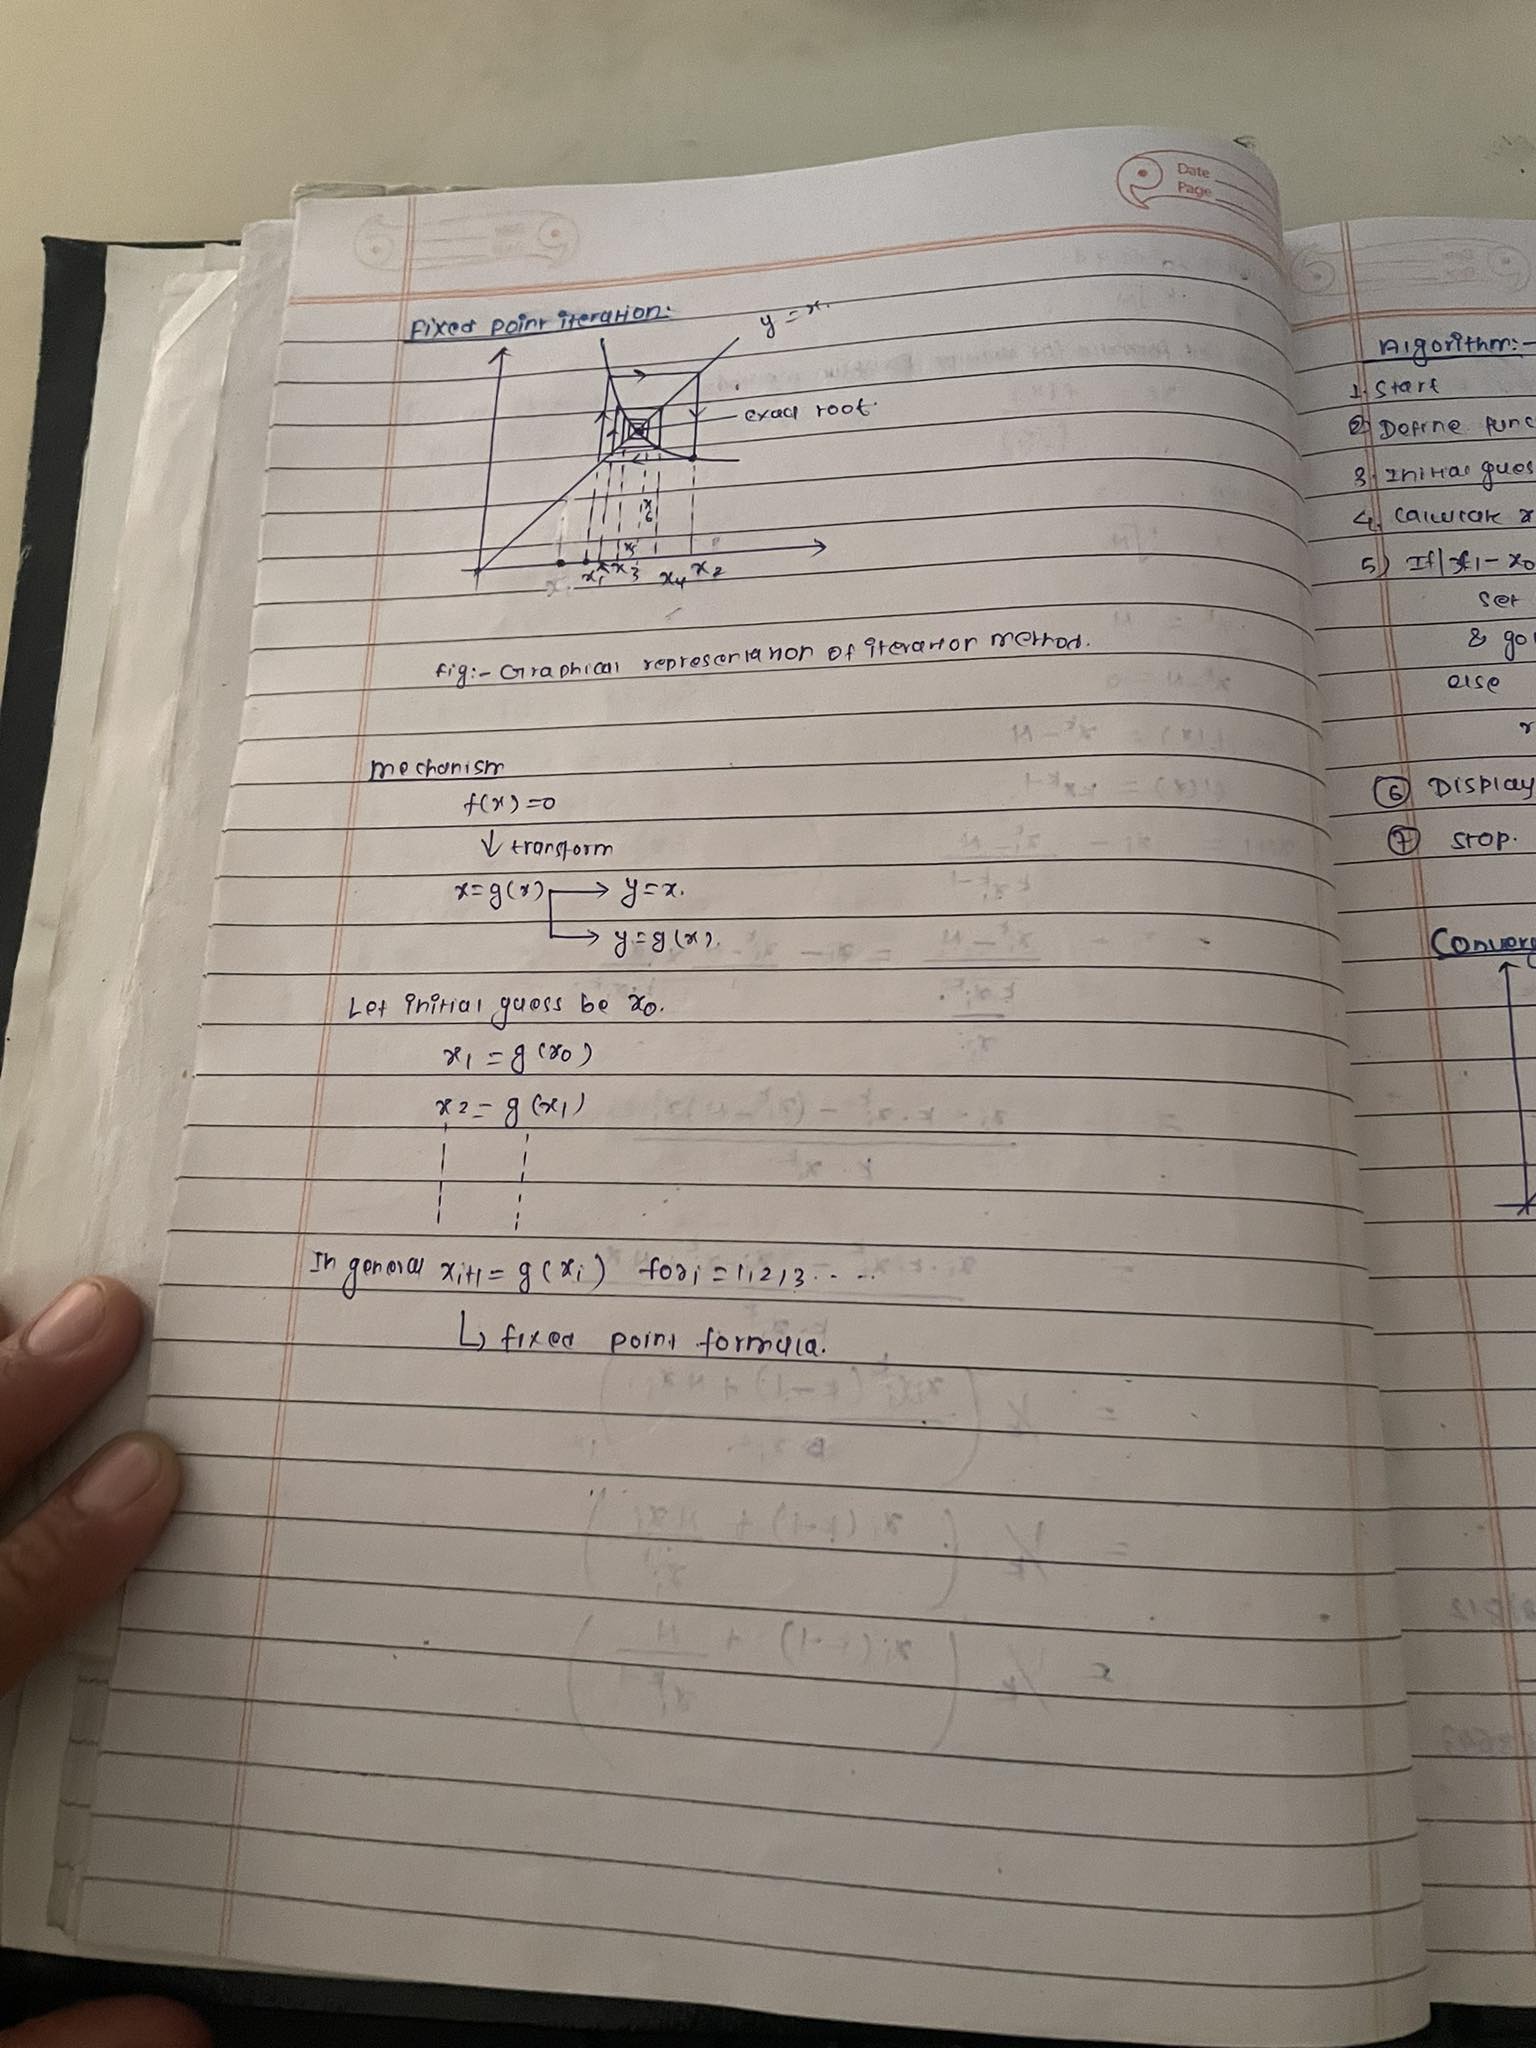 Date
Page
Fixed point iteration:
y = x.
exact root.
x6
x5
x1 x3 x4 x2
fig:- Graphical representation of iteration method.
mechanism
f(x) = 0
↓ transform
x = g(x) → y = x.
→ y = g(x).
Let initial guess be x0.
x1 = g(x0)
x2 = g(x1)
In general xi+1 = g(xi) for i = 1, 2, 3.....
↳ fixed point formula.
Algorithm:-
1. Start
2) Define func
3. Initial gues
4. Calculate x
5) If |x1 - x0
Set
& go
else
6 Display
7 stop.
Converg